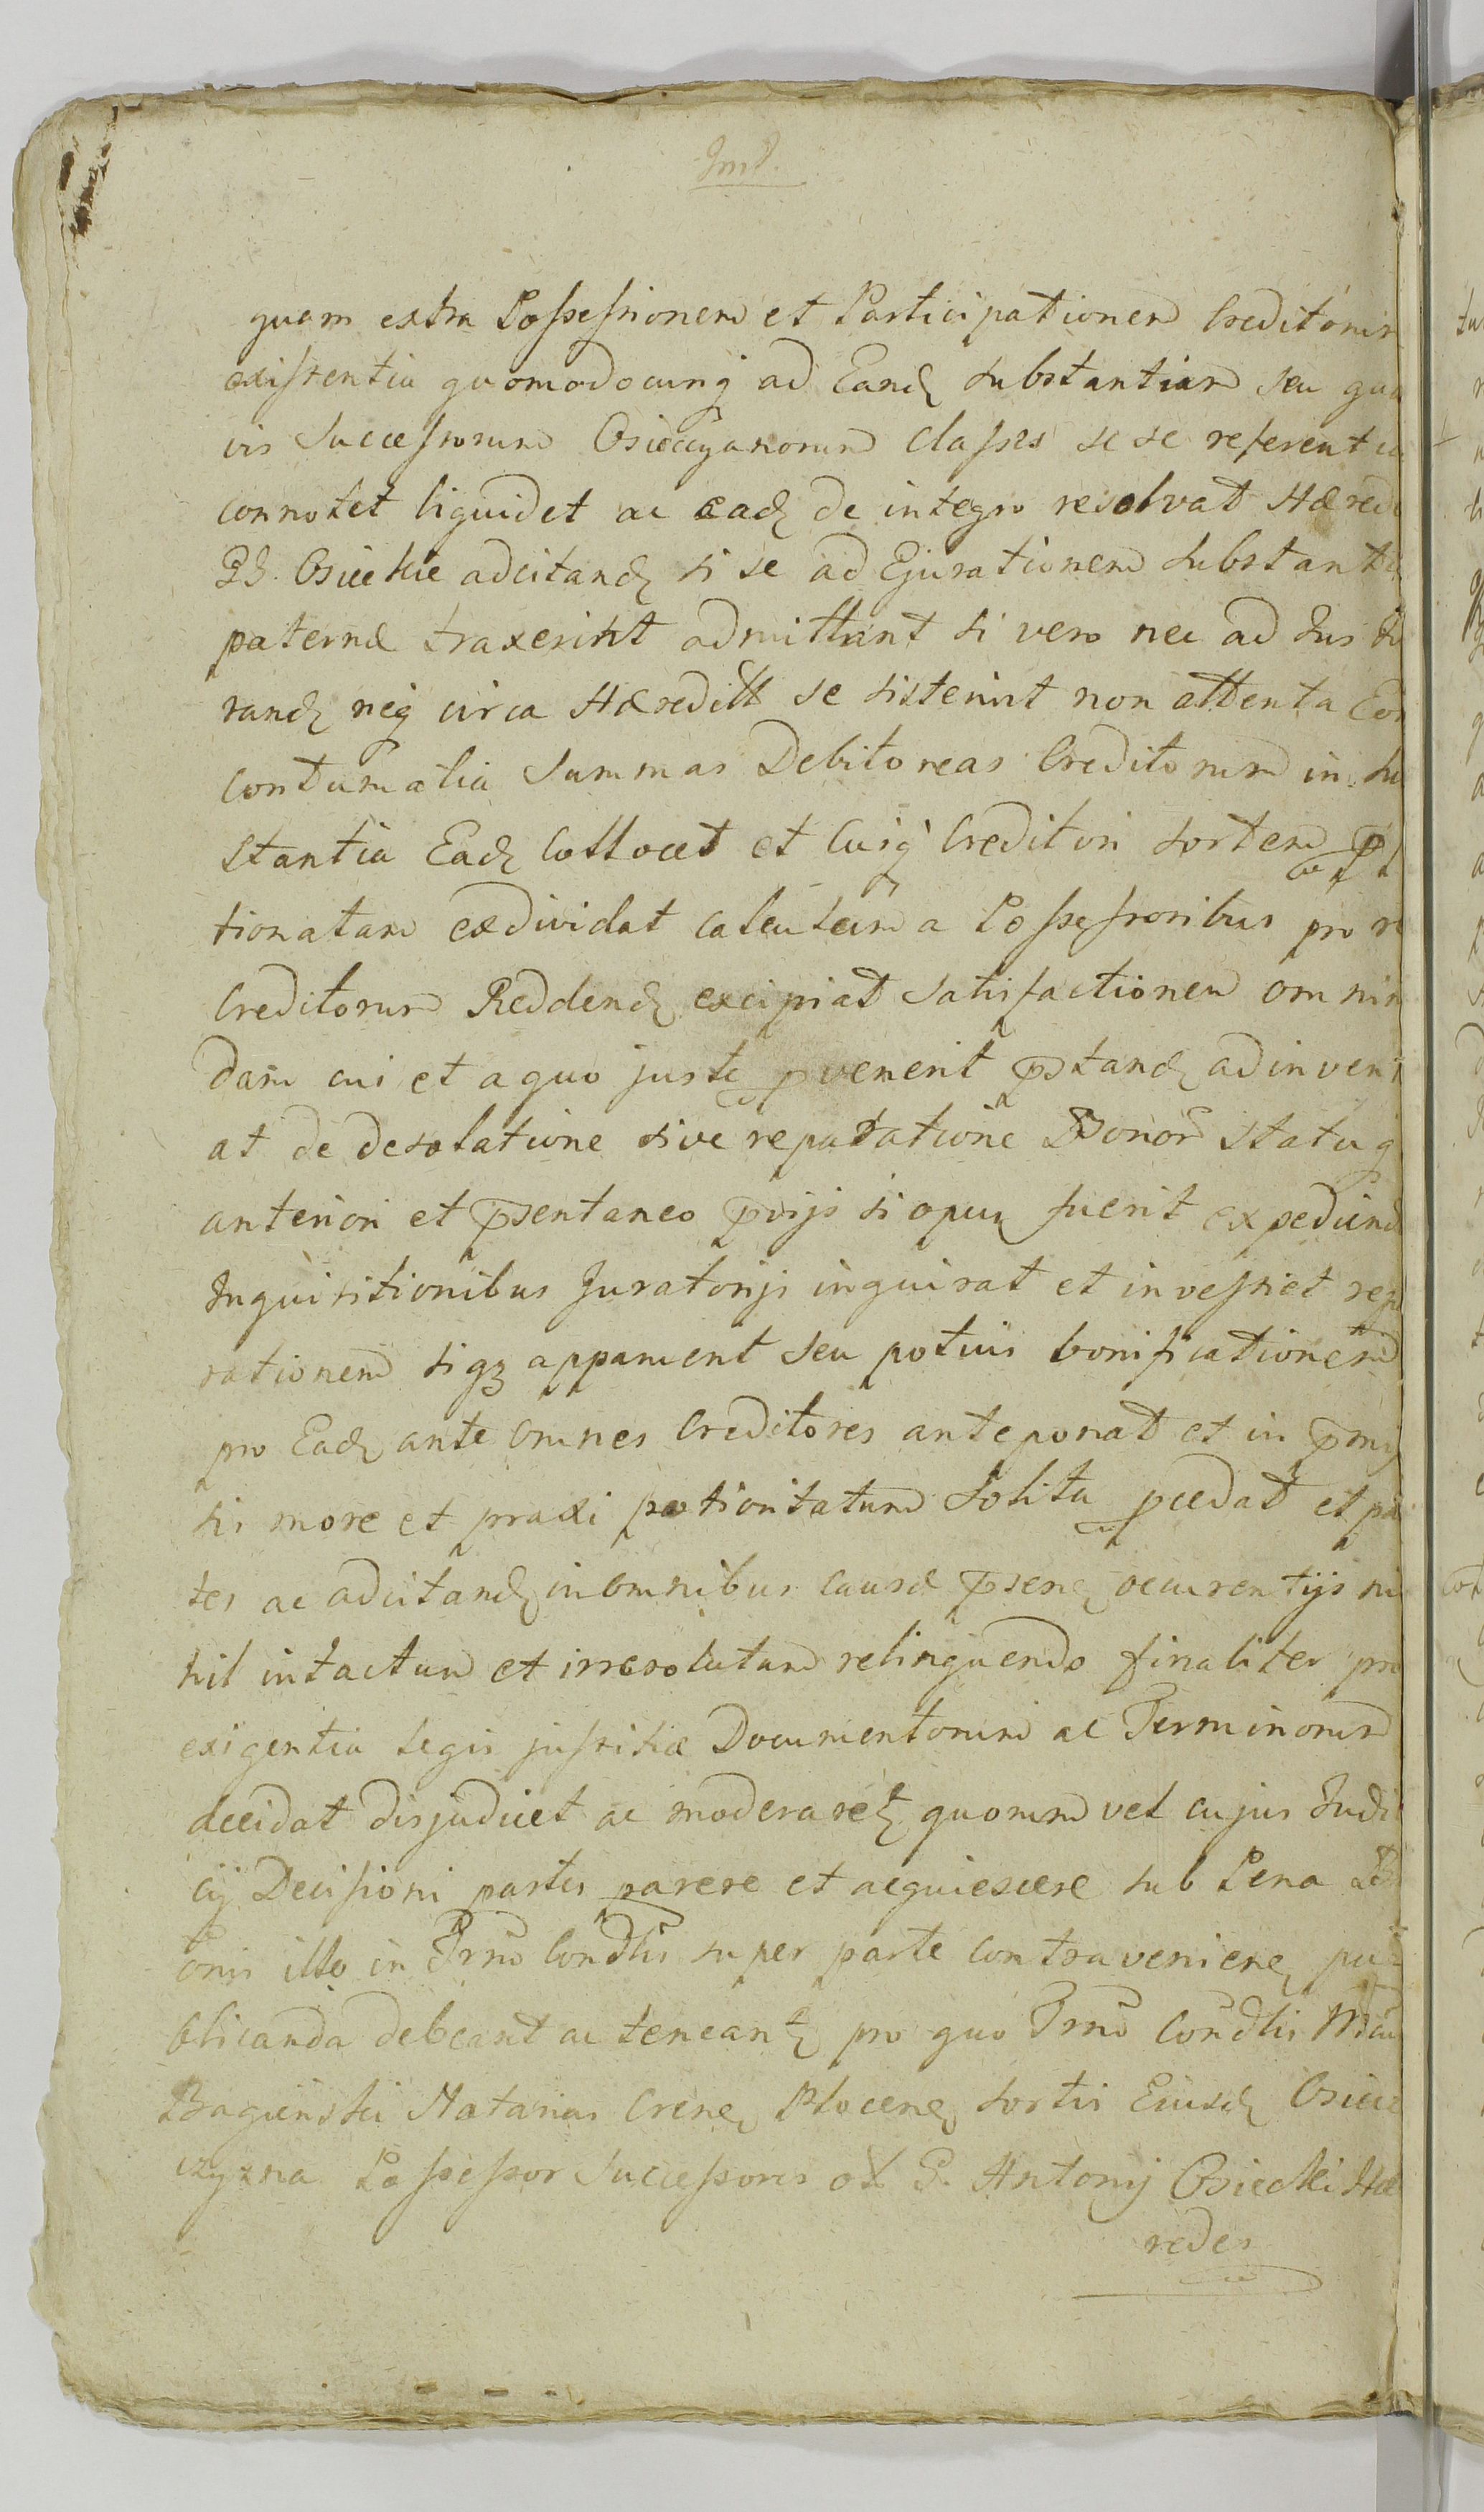 quam extra Possessionem et Participationem Creditorum
existentia quomodocunq ad Eand substantiam seu qua
vis Successorum Osieczyanorum Classes se se referentia
connotet liquidet ac ead de integro resolvat Hæredi
GG. Osieckie adcitand si se ad Ejurationem substanti
paternæ traxerint admittant si vero nec ad Jus
rand neq circa Hæreditt se sisterint non attenta Eor
Contumatia Summas Debitoreas Creditorum in su
stantia Ead Collocet et Cuiq Creditori sortem
tionatam exdividat calculum a Possessoribus pro re
Creditorum Reddend excipiat satisfactionem omnim
dam cui et a quo juste pvenerit pstand adinveni
at de desolatione sive reparatione Bonor statuq
anteriori et psentaneo pvijs si opus fuerit expediend
Inquisitionibus Juratorijs inquirat et investiet rep
rationem siqz apparuerit seu potius bonificationem
pro Ead ante Omnes Creditores anteponat et in pmis
sis more et praxi potioritatum Solita pcedat et par
tes ac adcitand in Omnibus causæ psen occurentijs ni
hil intactum et irresolutum relinquendo finaliter pro
exigentia legis justitiæ Documentorum ac Terminorum
decidat disjudicet ac moderaret quorum vel cujus Judi
cij Decisioni partes parere et acquiescere sub Pena
onis illo in Trno Condlis super parte contravenien pu
blicanda debeant ac teneant pro quo Trno Condlis
Bagienski Notarius Cren Plocen sortis Eiusd Osiec
czyzna Possessor Successores ol G. Antonij Osiecki Hæ
redes